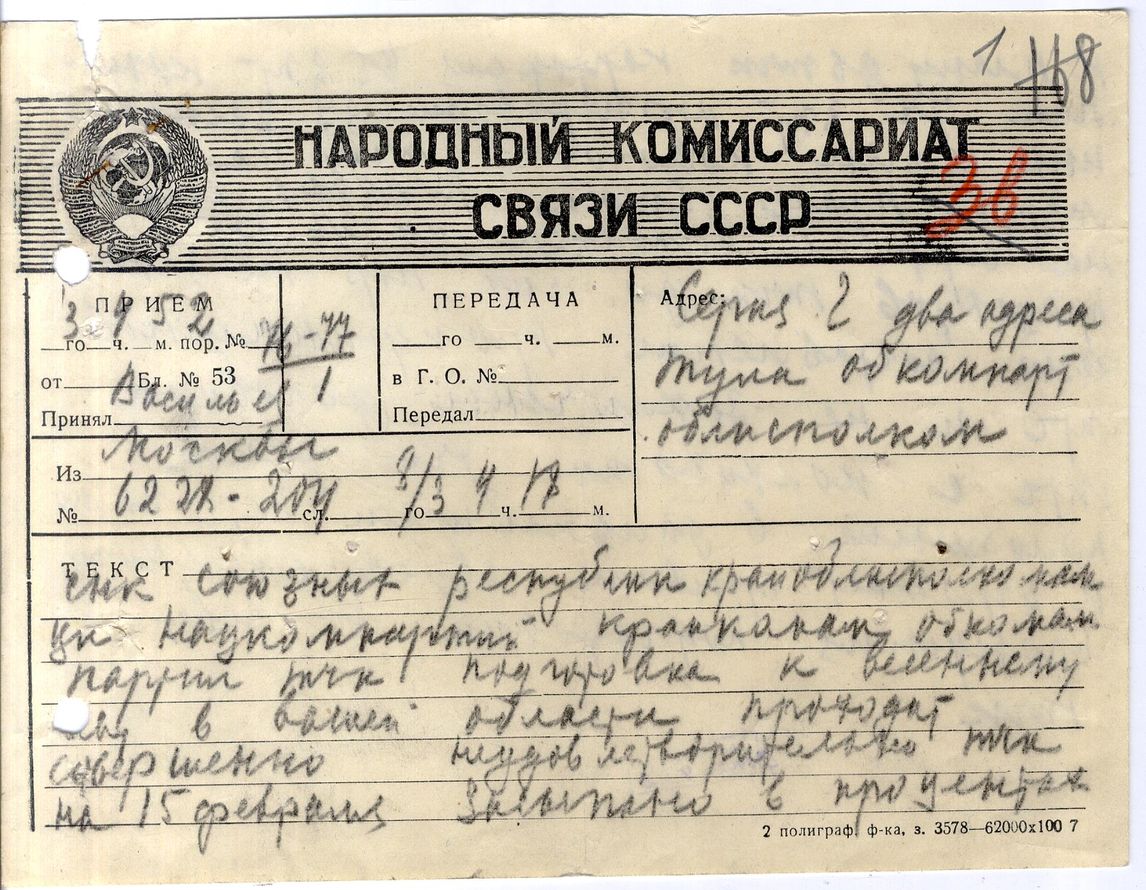 1 168
НАРОДНЫЙ КОМИССАРИАТ
СВЯЗИ СССР
36
ПРИЕМ
3 4 52
го ч. м. пор. № 76-77
от Бл. № 53 1
Принял Васильев
ПЕРЕДАЧА
го ч. м.
в Г. О. №
Передал
Адрес: Серия Г два адреса
Тула обкомпарт
облисполком
Из Москвы
№ сл. го ч. м.
ТЕКСТ
снк союзных республик крайоблисполкомам
цк нацкомпартий крайкомам обкомам
партии тчк подготовка к весеннему
севу в вашей области проходит
совершенно неудовлетворительно тчк
на 15 февраля засыпано в процентах
2 полиграф. ф-ка, з. 3578—62000х100 7